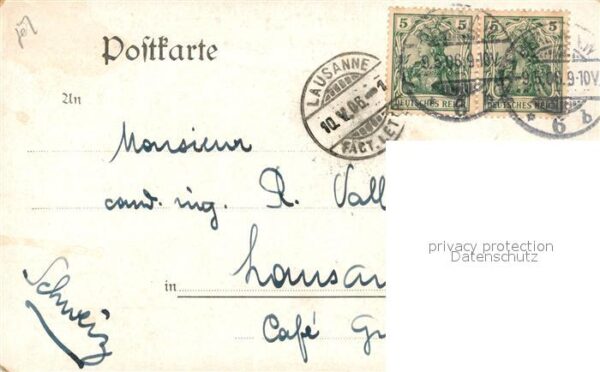 Postkarte
5 5 5 5
DEUTSCHES REICH DEUTSCHES REICH
9.5.06.9-10V. 9.5.06.9-10V.
6 b
LAUSANNE
10.V.06.
FACT. LETT
An
Monsieur
cand. ing. R. Vall
in Lausan
Café Gr
Schweiz
privacy protection
Datenschutz